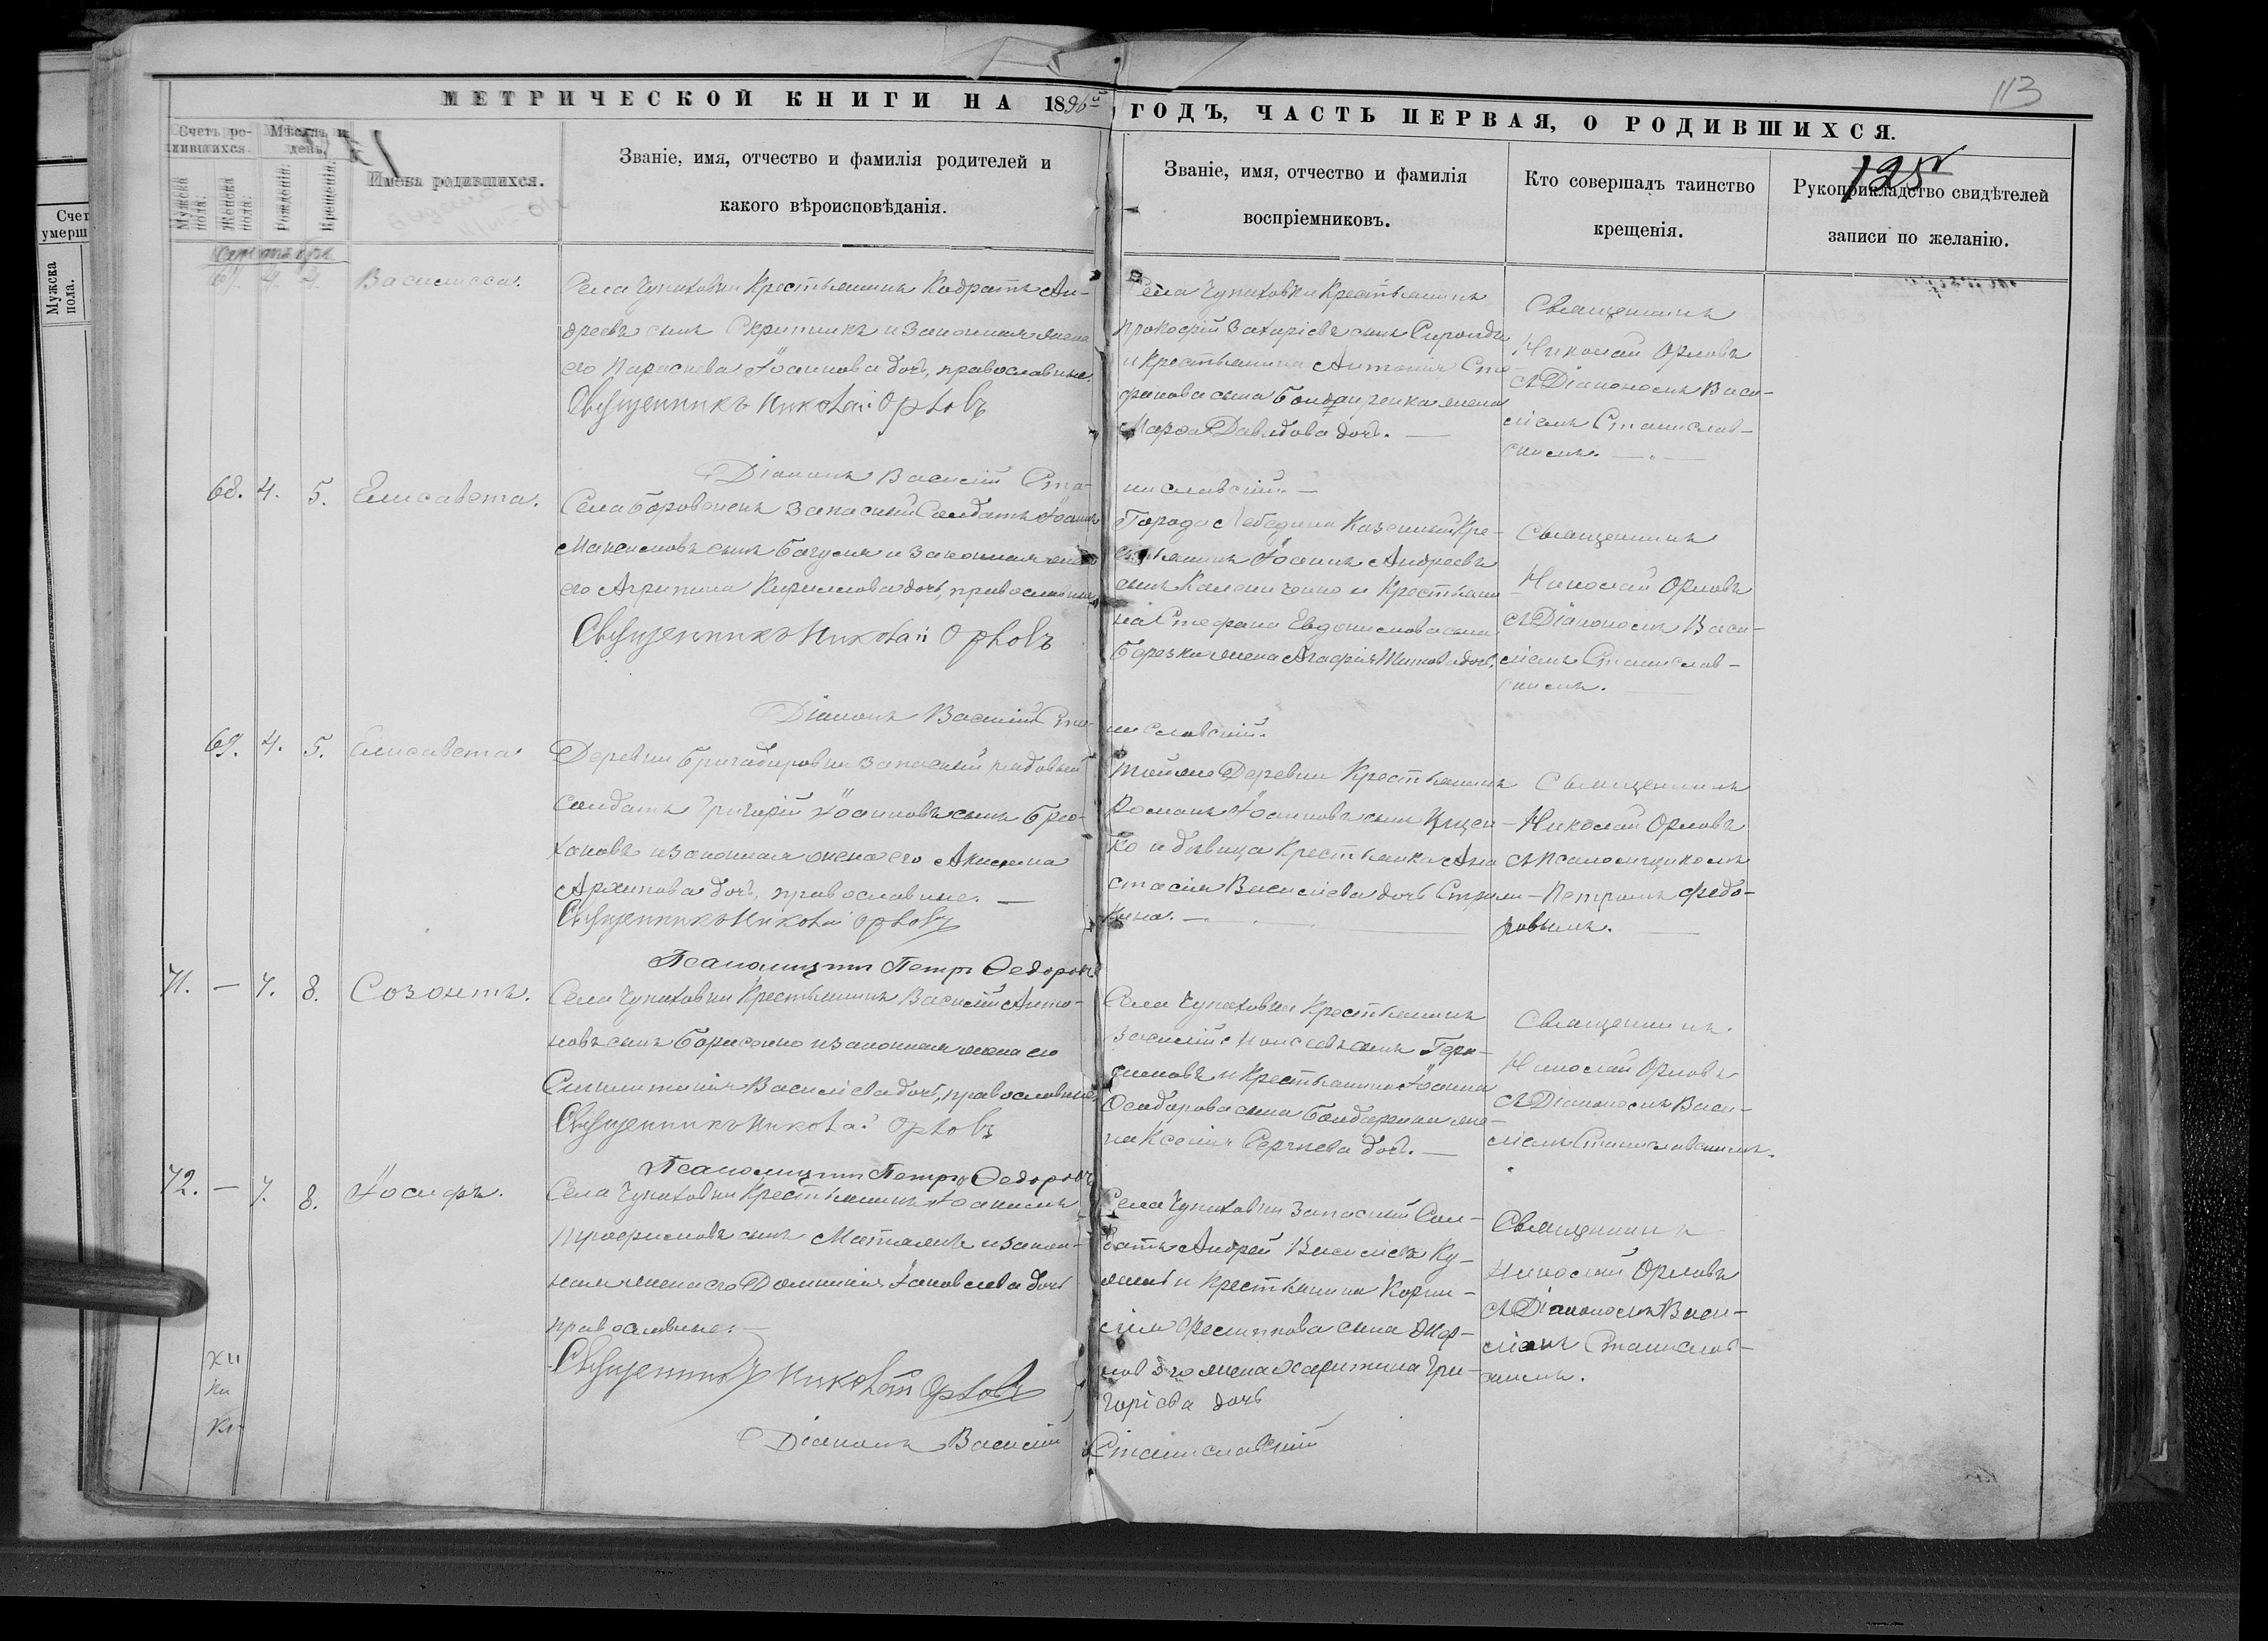 113
МЕТРИЧЕСКОЙ КНИГИ НА 1896й ГОДЪ, ЧАСТЬ ПЕРВАЯ, О РОДИВШИХСЯ.
125
Счетъ ро-
дившихся.
Мужска
пола.
Женска
пола.
Мѣсяцъ и
день.
Рожденія.
Крещенія.
Имена родившихся.
Званіе, имя, отчество и фамилія родителей и
какого вѣроисповѣданія.
Званіе, имя, отчество и фамилія
воспріемниковъ.
Кто совершалъ таинство
крещенія.
Рукоприкладство свидѣтелей
записи по желанію.
Счет
умерш
Мужска
пола.
Сентябрь
67. 4. 4. Василисса.
Села Чупаховки Крестьянинъ Кодратъ Ан-
дреевъ сынъ Скрипникъ и законная жена
его Параскева Іоаннова дочь, православные.
Священникъ Николай Орловъ
Діаконъ Василій Ста-
ниславскій. —
Села Чупаховки Крестьянинъ
Прокофій Захаріевъ сынъ
и крестьянина Антонія Сте-
фанова сына Бондаренка жена
Марѳа Давидова дочь. —
Священникъ
Николай Орловъ
съ Діакономъ Васи-
ліемъ Станислав-
скимъ. —
68. 4. 5. Елисавета.
Села Боровенекъ Запасный Солдатъ Іоаннъ
Максимовъ сынъ и законная жена
его Агрипина Кириллова дочь, православные
Священникъ Николай Орловъ
Діаконъ Василій Ста-
ниславскій.
Города Лебедина Казенный Кре-
стьянинъ Іоаннъ Андреевъ
сынъ и Крестьяни-
на Стефана Евдокимова сына
Березки жена Агафія Титова дочь.
Священникъ
Николай Орловъ
съ Діакономъ Васи-
ліемъ Станислав-
скимъ.
69. 4. 5. Елисавета
Деревни Бригадировки запасный рядовый
солдатъ Григорій Іоанновъ сынъ Брю-
хановъ и законная жена его Акилина
Архипова дочь, православные. —
Священникъ Николай Орловъ
Псаломщикъ Петръ Ѳедоровъ
Той же Деревни Крестьянинъ
Романъ Іоанновъ сынъ
ко и дѣвица Крестьянка Ана-
стасія Василіева дочь
кина. —
Священникъ
Николай Орловъ
съ Псаломщикомъ
Петромъ Федо-
ровымъ.
71. — 7. 8. Созонтъ.
Села Чупаховки Крестьянинъ Василій Анто-
новъ сынъ Борисенко и законная жена его
Василіева дочь, православные.
Священникъ Николай Орловъ
Псаломщикъ Петръ Ѳедоровъ
Села Чупаховки Крестьянинъ
Василій Моисеевъ сынъ Гера-
симовъ и Крестьянина Іоанна
Ѳеодорова сына Бондаренка же-
на Ксенія Сергиева дочь. —
Священникъ.
Николай Орловъ
съ Діакономъ Васи-
ліемъ Станиславскимъ.
72. — 7. 8. Іосифъ.
Села Чупаховки Крестьянинъ Іоакимъ
сынъ и закон-
ная жена его Домникія Іаковлева дочь
православные. —
Священникъ Николай Орловъ
Діаконъ Василій Станиславскій
Села Чупаховки Запасный Сол-
датъ Андрей Василіевъ Ку-
и Крестьянина Корни-
лія Филиппова сына
жена Харитина Гри-
горіева дочь
Священникъ
Николай Орловъ
съ Діакономъ Васи-
ліемъ Станислав-
скимъ.